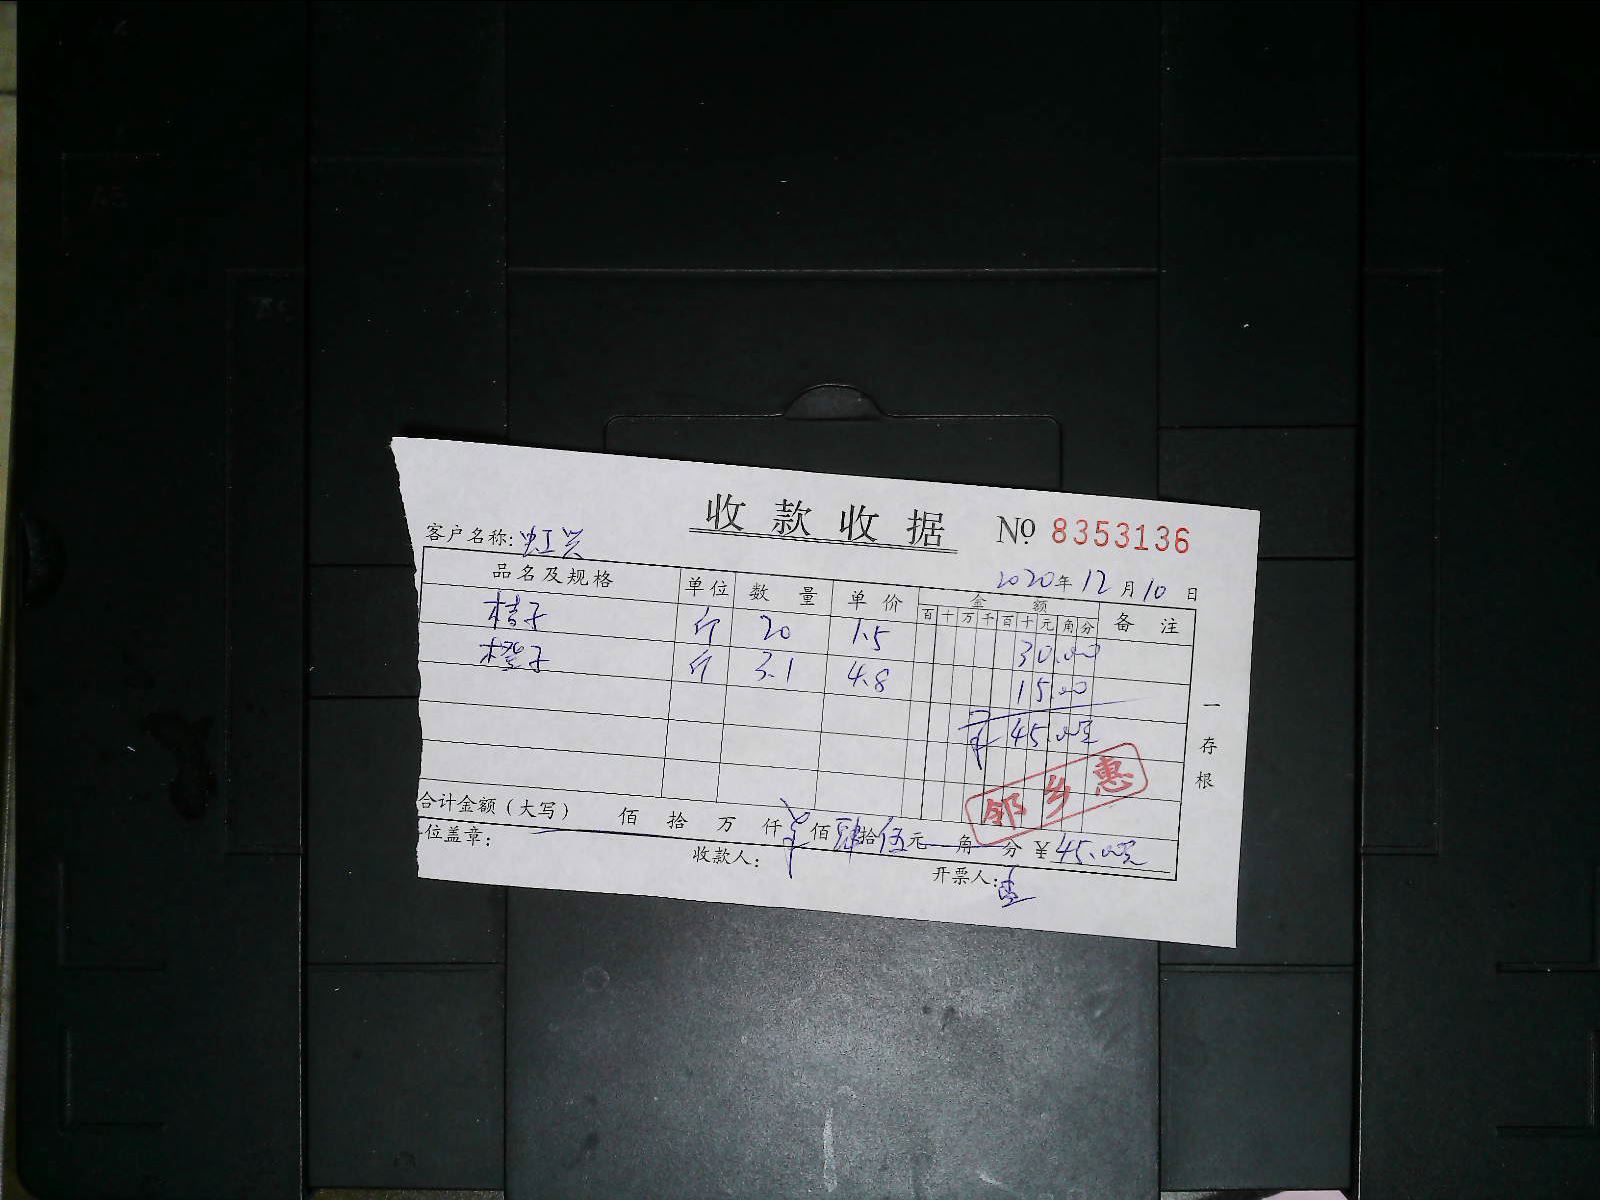 收款收据 № 8353136
客户名称: 虹兴
2020年12月10日
品名及规格 单位 数量 单价 金额 备注
百 十 万 千 百 十 元 角 分
桔子 斤 20 1.5 30.00
橙子 斤 3.1 4.8 15.00
¥45.00元
邻乡惠
合计金额（大写） 佰 拾 万 仟 ¥ 佰 肆拾伍元 角 分 ¥45.00元
位盖章: 收款人: 开票人:
一存根